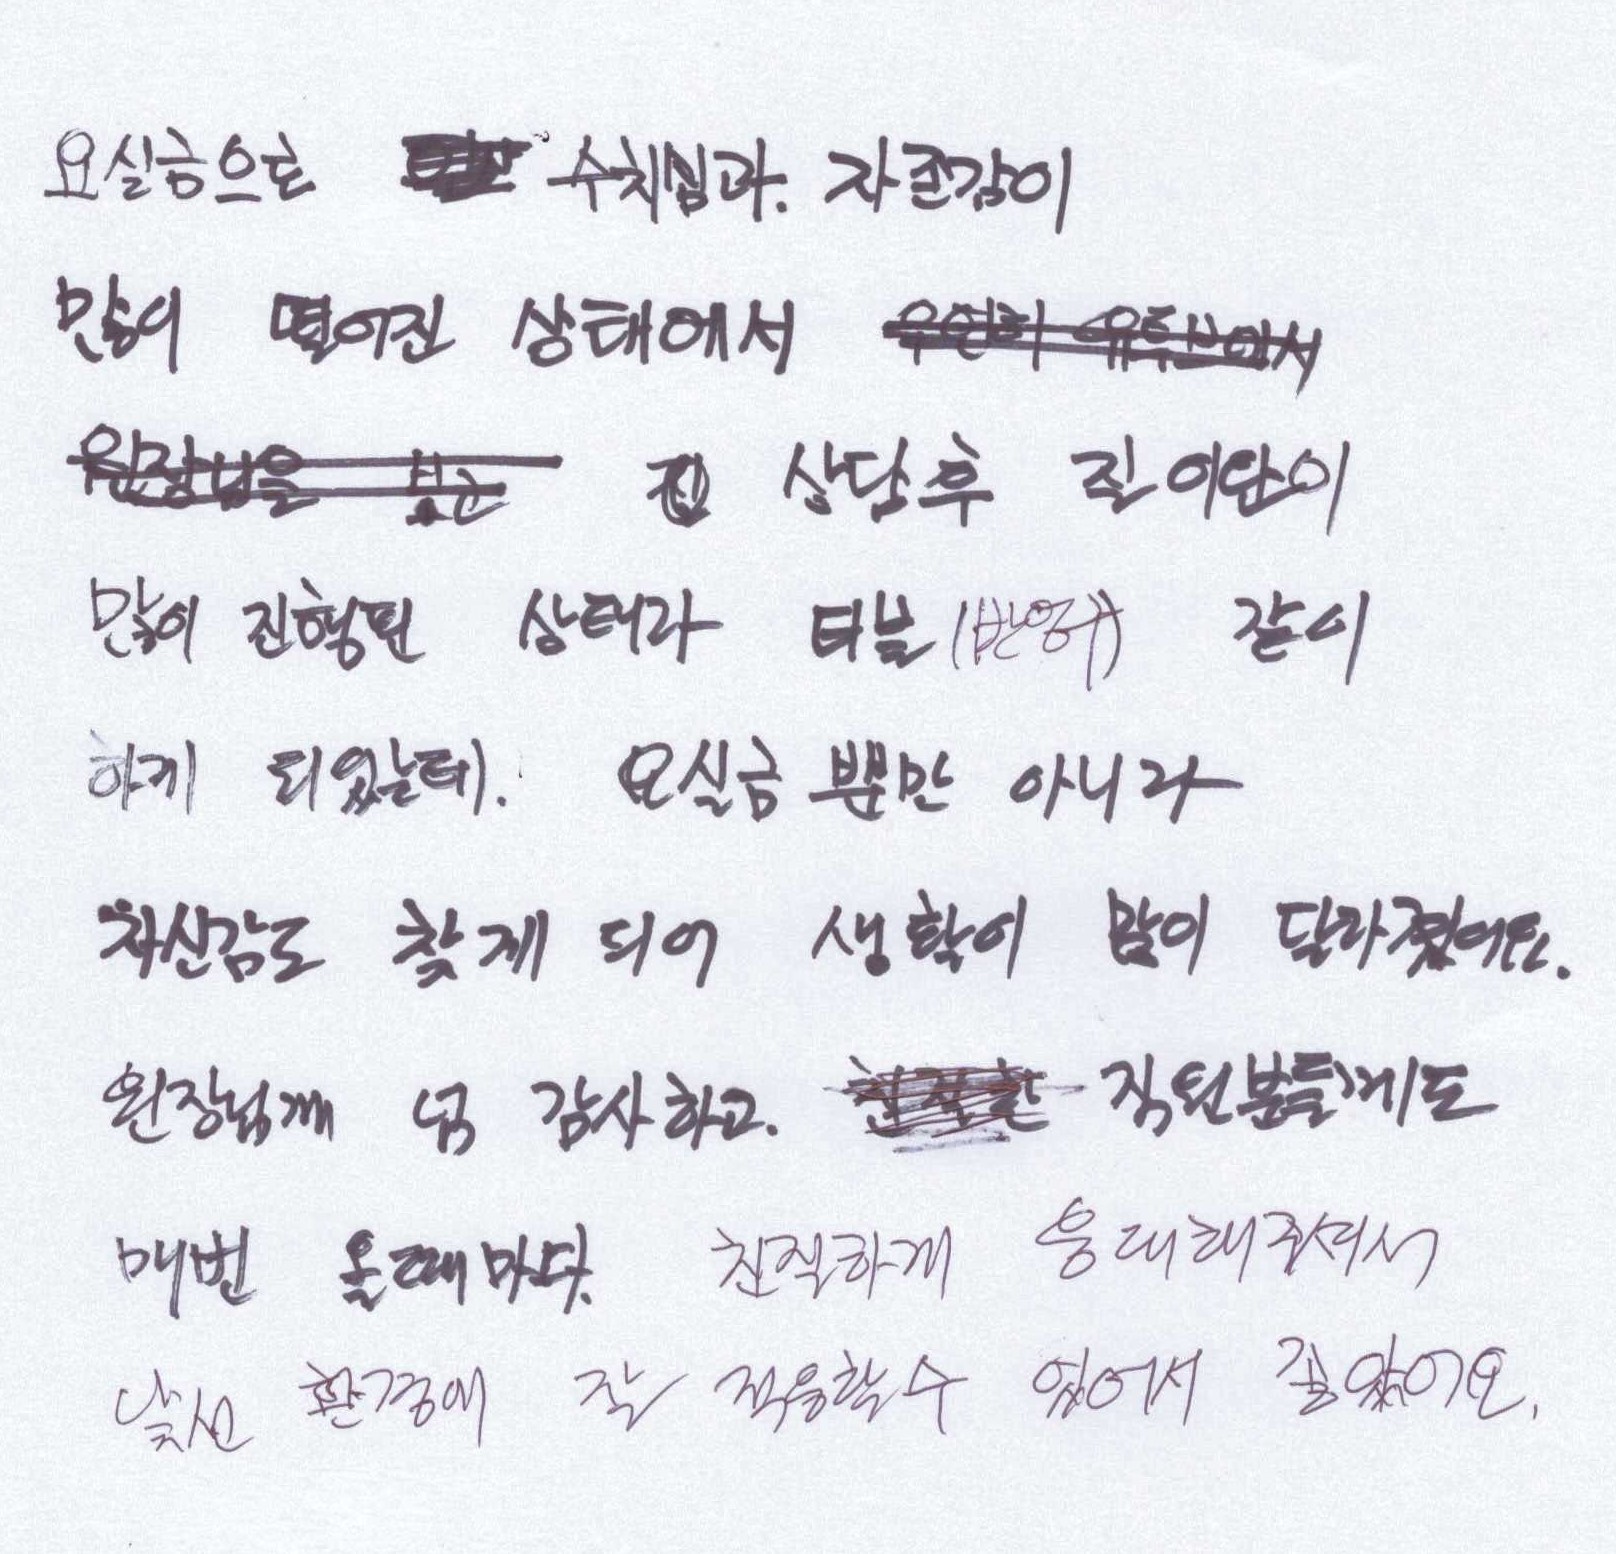 요실금으로 수치심과. 자존감이
많이 떨어진 상태에서 우연히 유튜브에서
원장님을 보고 상담후 질 이완이
많이 진행된 상태라 티블(반영구) 같이
하게 되었는데. 요실금 뿐만 아니라
자신감도 찾게 되어 생활이 많이 달라졌어요.
원장님께 넘 감사하고. 직원분들께도
매번 올때마다. 친절하게 응대해주셔서
낯선 환경에 잘 적응할수 있어서 좋았어요.